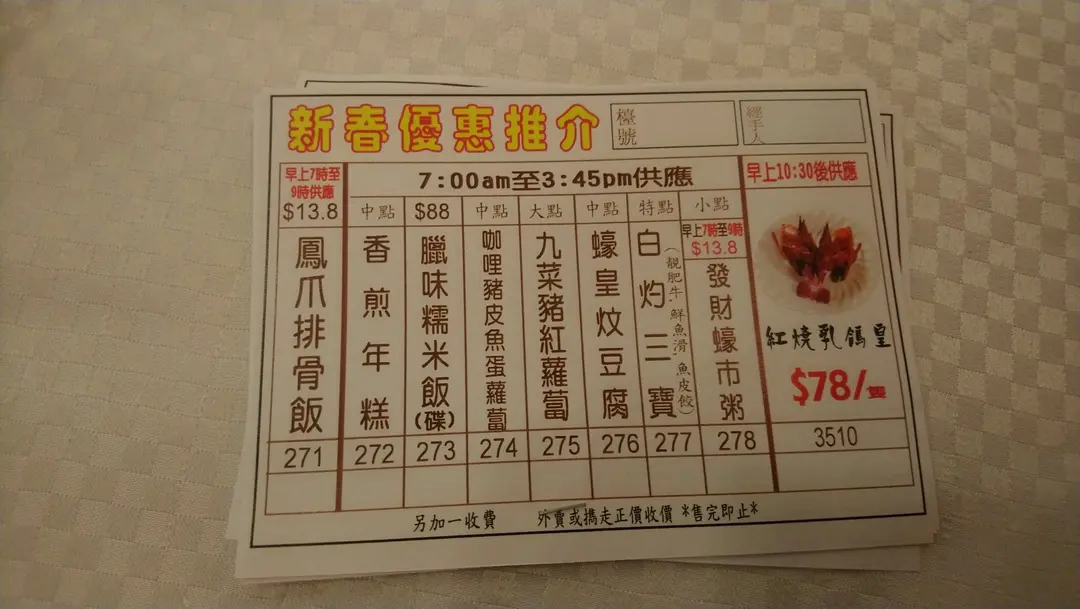 新春優惠推介
檯號
經手人
早上7時至
9時供應
$13.8
鳳爪排骨飯
271
7:00am至3:45pm供應
中點
香煎年糕
272
$88
臘味糯米飯(碟)
273
中點
咖哩豬皮魚蛋蘿蔔
274
大點
九菜豬紅蘿蔔
275
中點
蠔皇炆豆腐
276
特點
白灼三寶
(靚肥牛 鮮魚滑 魚皮餃)
277
小點
早上7時至9時
$13.8
發財蠔市粥
278
早上10:30後供應
紅燒乳鴿皇
$78/隻
3510
另加一收費
外賣或攜走正價收價 *售完即止*